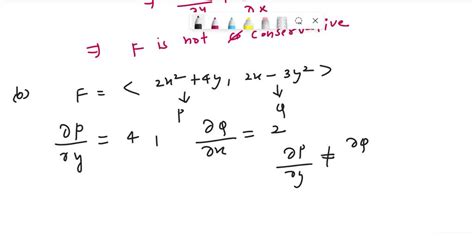 ⇒ ∂y ∂x
⇒ F is not conservative
(b) F = < 2x² + 4y, 2x - 3y² >
↓ ↓
P Q
∂P/∂y = 4 , ∂Q/∂x = 2
∂P/∂y ≠ ∂Q